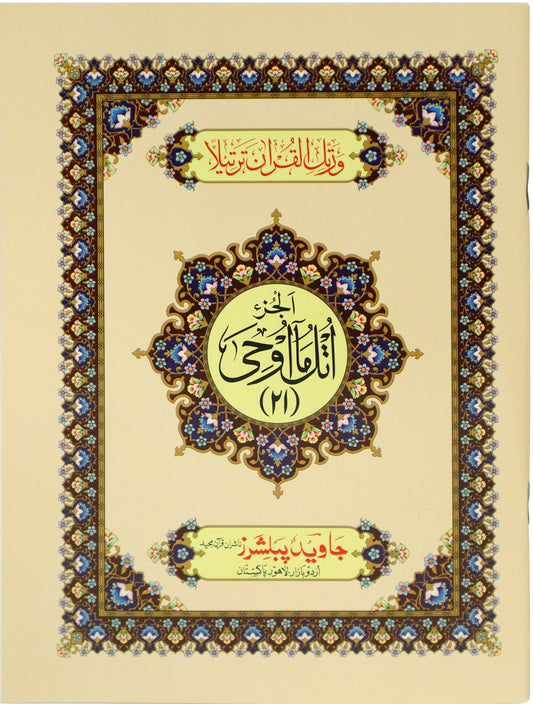 وَرَتِّلِ الْقُرْاٰنَ تَرْتِیْلًا
اَلْجُزْءُ
اُتْلُ مَاۤ اُوْحِیَ
(۲۱)
جاوید پبلشرز ناشران قرآن مجید
اردو بازار لاہور پاکستان